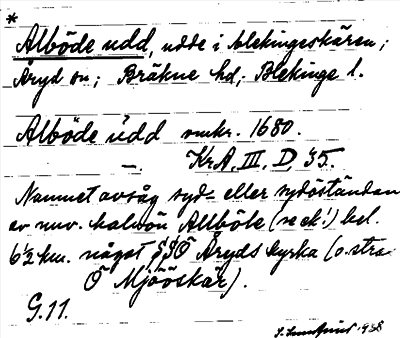 *
Alböde udd, udde i blekingeskären;
Åryd sn; Bräkne hd; Blekinge l.
Alböde udd omkr. 1680.
—. KrA, III, D, 35.
Namnet avsåg syd- eller sydöständan
av nuv. halvön Allböle (so ek!) bel.
6½ km. något SSÖ Åryds kyrka (o. stra
Ö Mjööskär).
G. 11.
1938